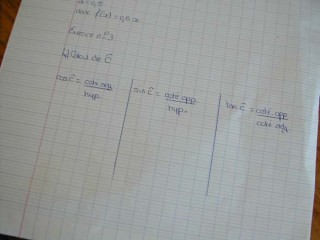 a = 0,5
donc f(x) = 0,5x
Exercice n°3
1) Calcul de Ĉ
cos Ĉ = côté adj. / hyp.
sin Ĉ = côté opp / hyp.
tan Ĉ = côté opp. / côté adj.